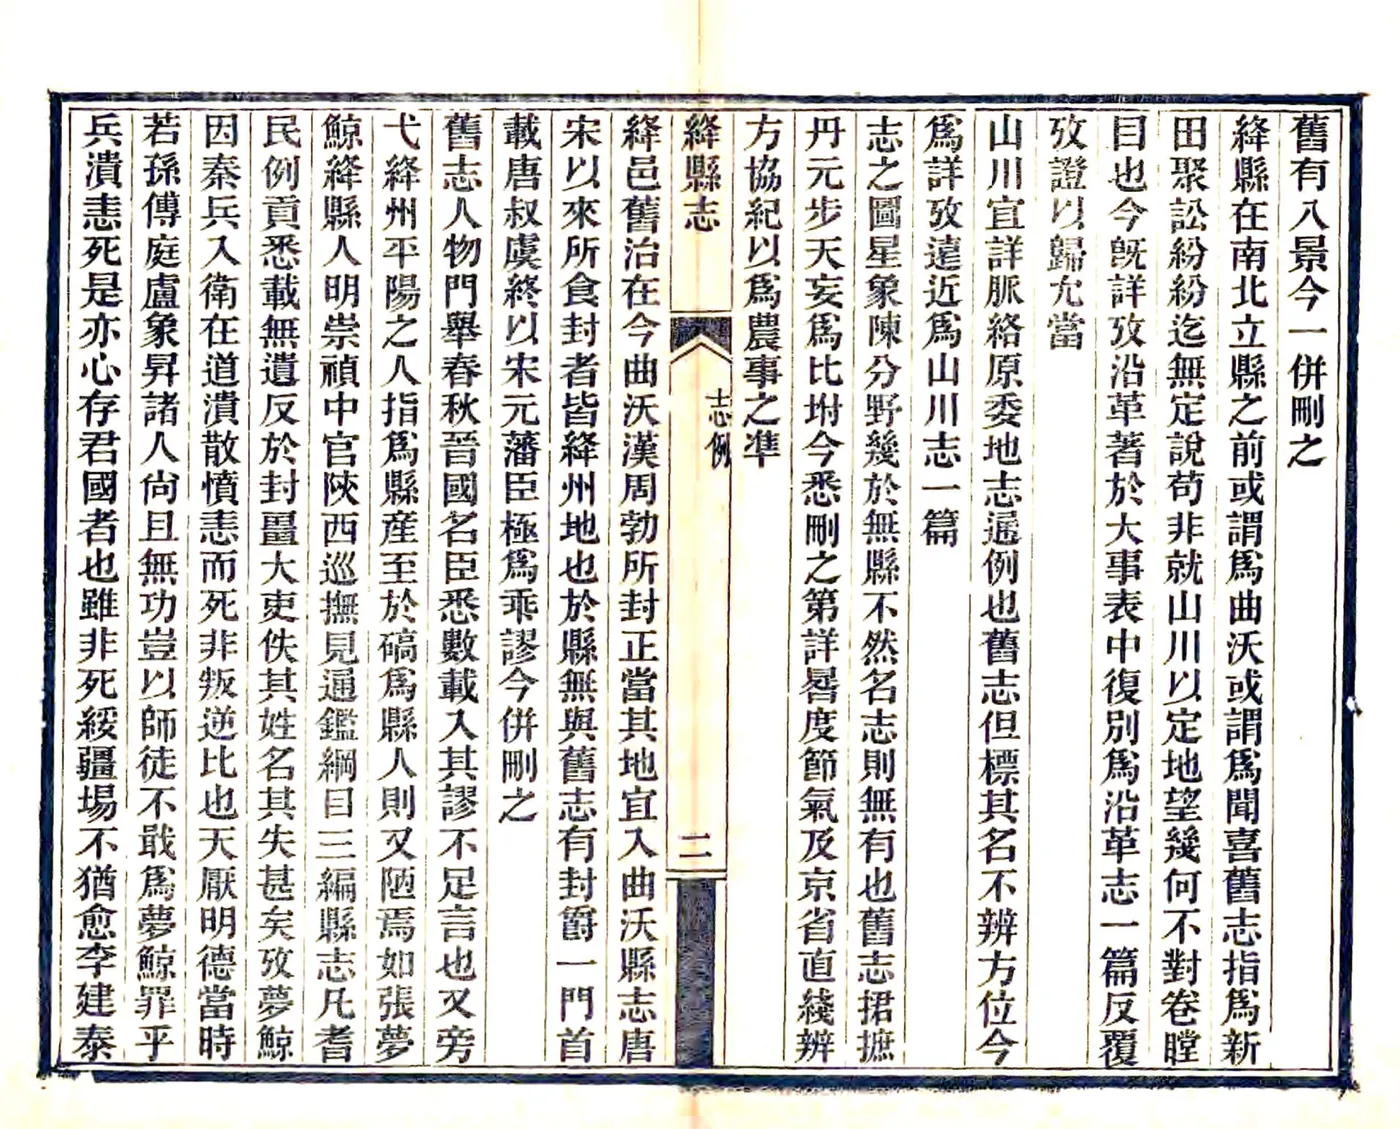 舊有八景今一併刪之
絳縣在南北立縣之前或謂爲曲沃或謂爲聞喜舊志指爲新
田聚訟紛紛迄無定說苟非就山川以定地望幾何不對卷瞠
目也今旣詳攷沿革著於大事表中復別爲沿革志一篇反覆
攷證以歸允當
山川宜詳脈絡原委地志通例也舊志但標其名不辨方位今
爲詳攷遠近爲山川志一篇
志之圖星象陳分野幾於無縣不然名志則無有也舊志捃摭
丹元步天妄爲比坿今悉刪之第詳晷度節氣及京省直綫辨
方協紀以爲農事之準
絳縣志
志例
二
絳邑舊治在今曲沃漢周勃所封正當其地宜入曲沃縣志唐
宋以來所食封者皆絳州地也於縣無與舊志有封爵一門首
載唐叔虞終以宋元藩臣極爲乖謬今併刪之
舊志人物門舉春秋晉國名臣悉數載入其謬不足言也又旁
弋絳州平陽之人指爲縣產至於碻爲縣人則又陋焉如張夢
鯨絳縣人明崇禎中官陝西巡撫見通鑑綱目三編縣志凡耆
民例貢悉載無遺反於封疆大吏佚其姓名其失甚矣攷夢鯨
因秦兵入衛在道潰散憤恚而死非叛逆比也天厭明德當時
若孫傳庭盧象昇諸人尙且無功豈以師徒不戢爲夢鯨罪乎
兵潰恚死是亦心存君國者也雖非死綏疆場不猶愈李建泰